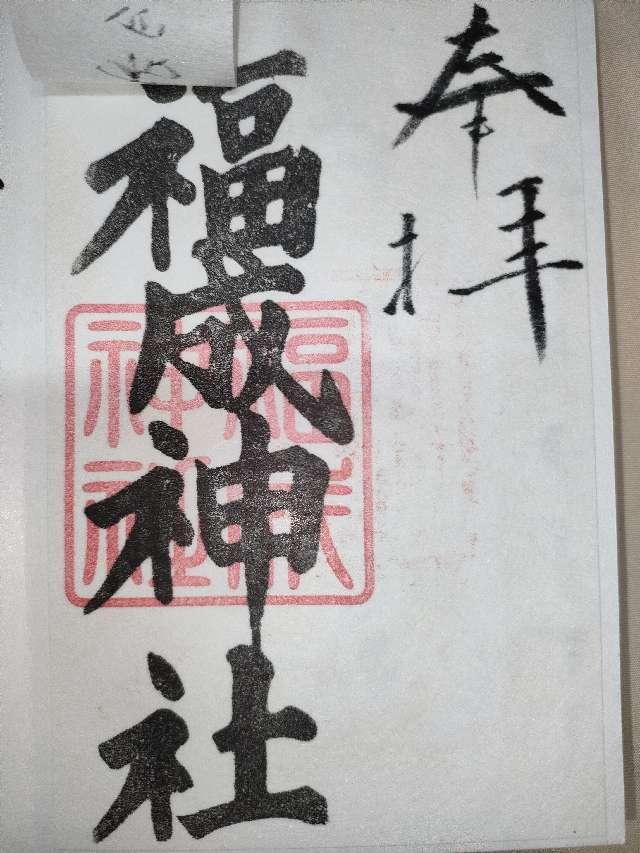 奉拝
福成神社
福成神社